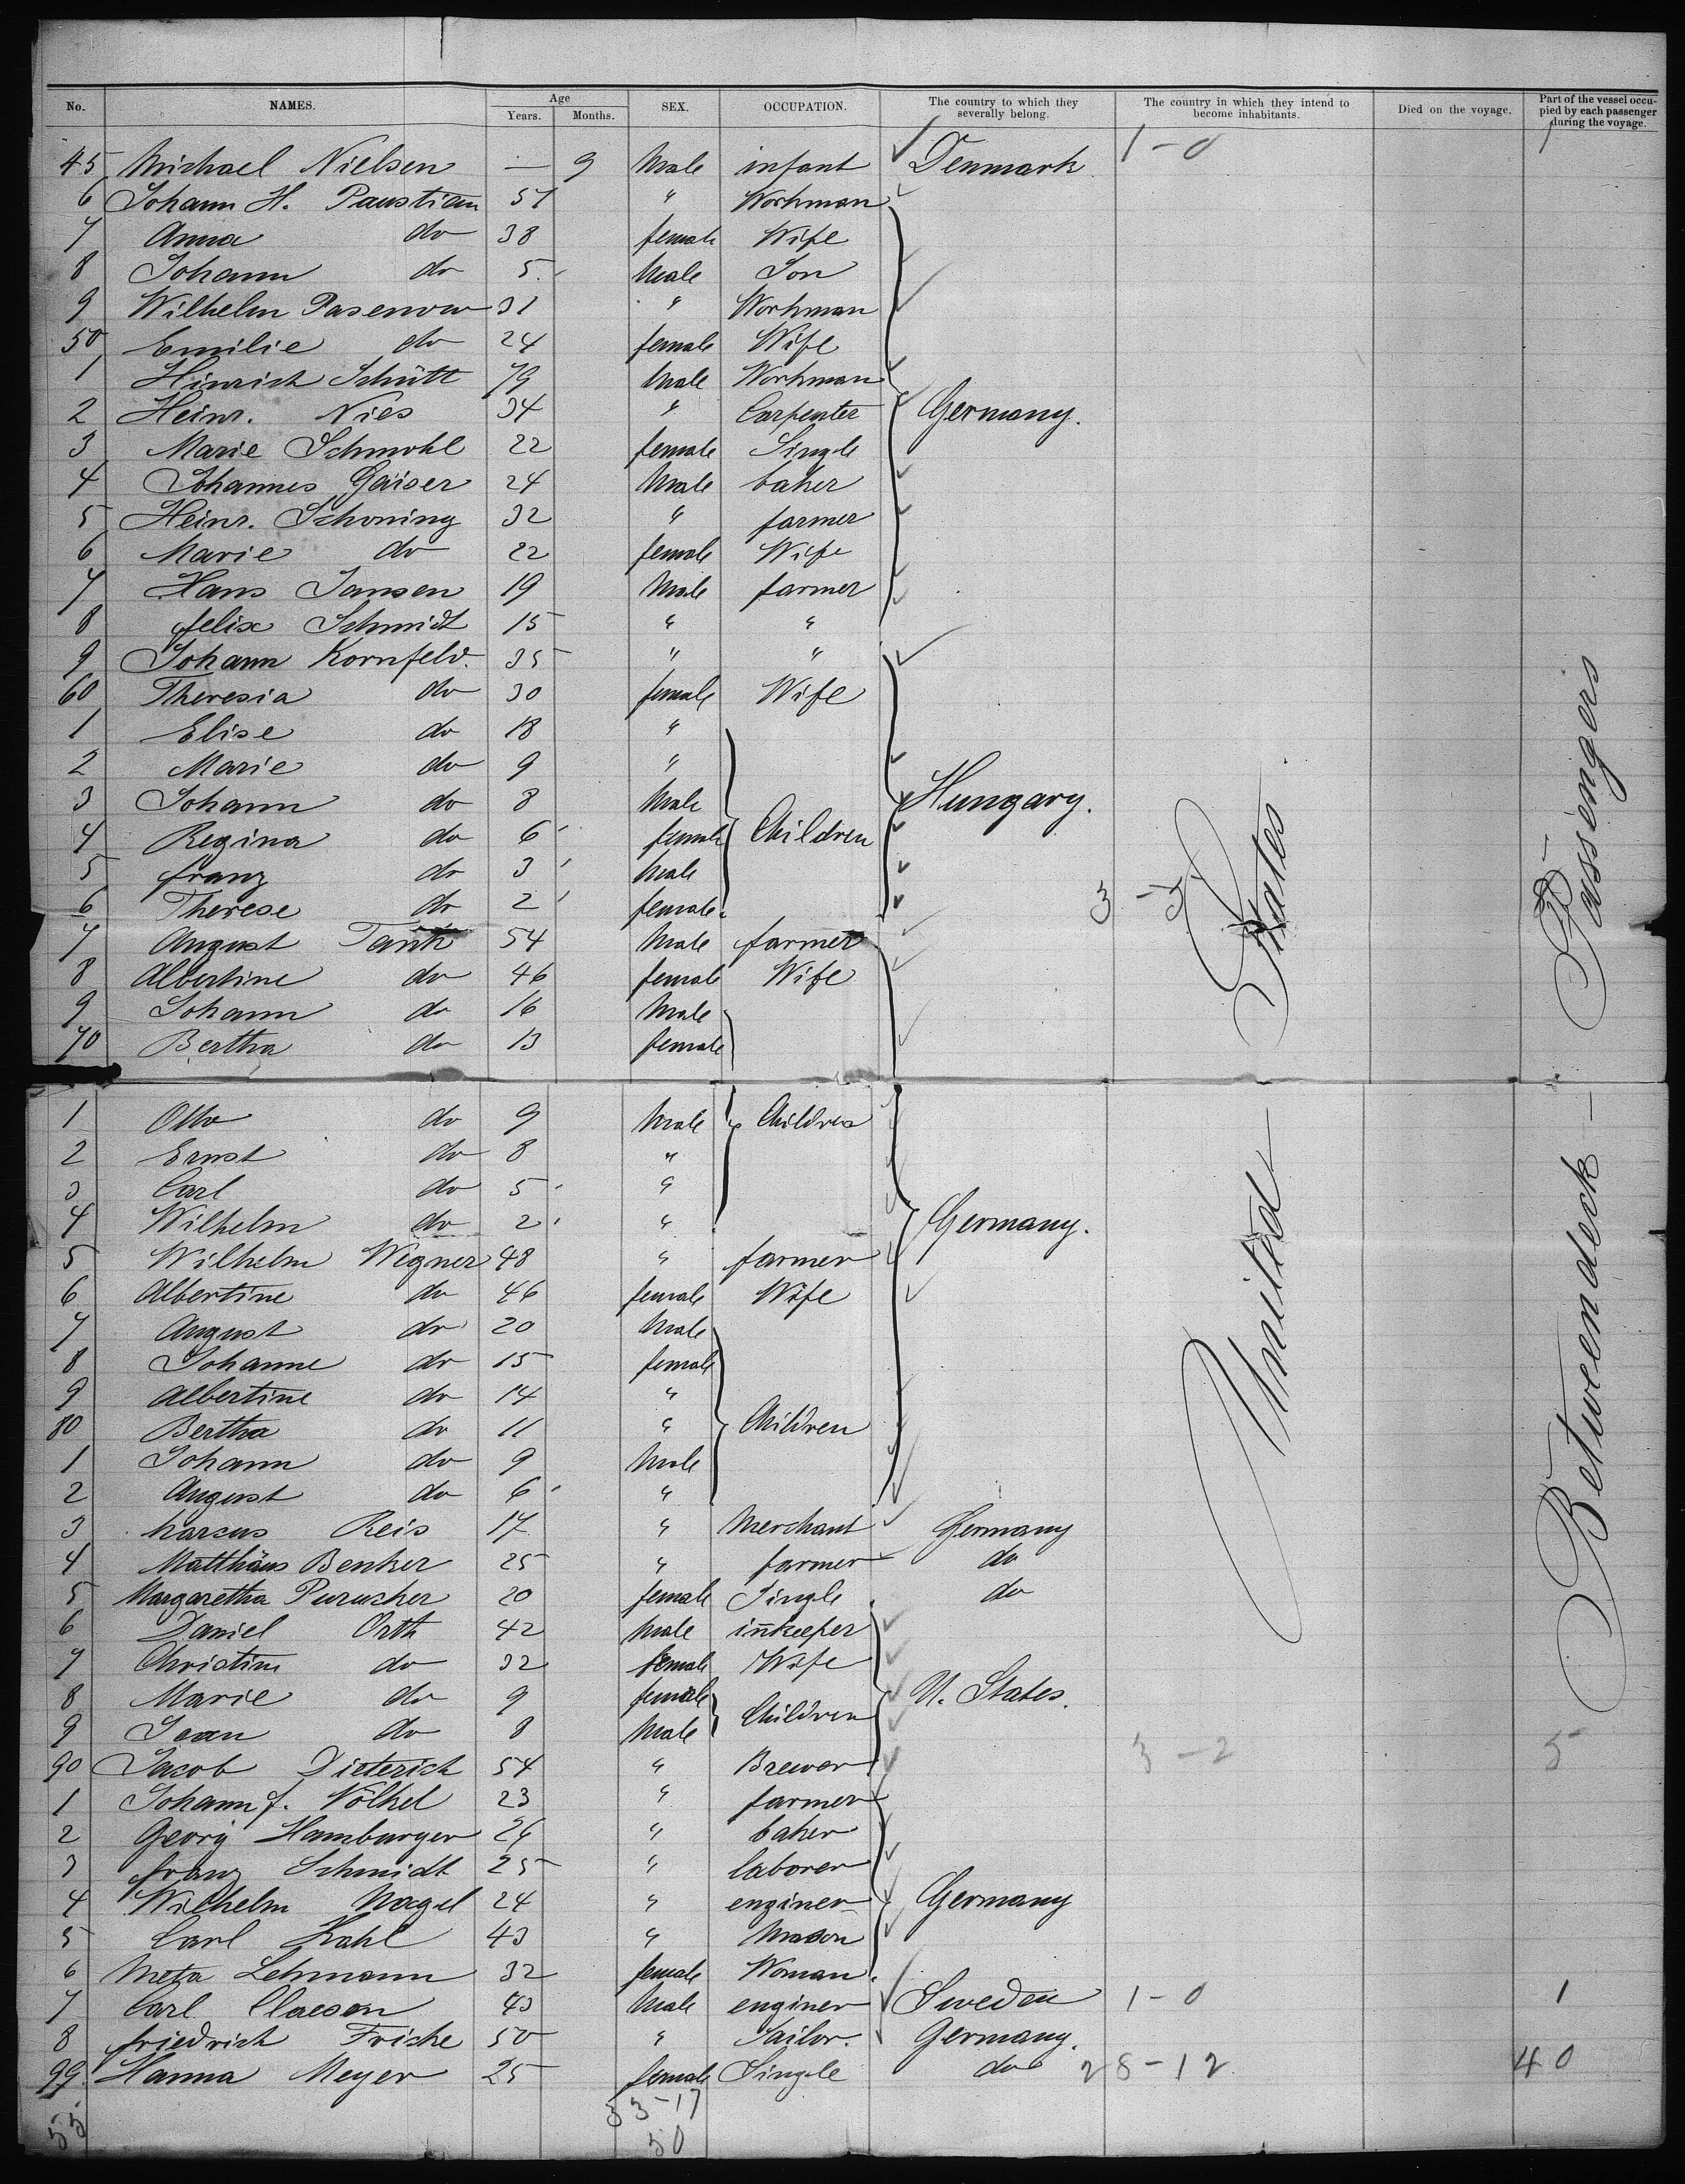 No. NAMES. Age Years. Months. SEX. OCCUPATION. The country to which they severally belong. The country in which they intend to become inhabitants. Died on the voyage. Part of the vessel occupied by each passenger during the voyage.
45 Michael Nielsen — 9 Male infant Denmark 1-0 1
6 Johann H. Paustian 51 " Workman
7 Anna do 38 female Wife
8 Johann do 5 Male Son
9 Wilhelm Pasenow 31 " Workman
50 Emilie do 24 female Wife
1 Hinrich Schütt 79 Male Workman
2 Heinr. Nies 34 " Carpenter Germany.
3 Marie Schmohl 22 female Single
4 Johannes Gaiser 24 Male baker
5 Heinr. Schoning 32 " farmer
6 Marie do 22 female Wife
7 Hans Jansen 19 Male farmer
8 felix Schmidt 15 " "
9 Johann Kornfeld. 35 " "
60 Theresia do 30 female Wife
1 Elise do 18 "
2 Marie do 9 "
3 Johann do 8 Male Hungary.
4 Regina do 6 female Children
5 franz do 3 Male
6 Therese do 2 female 3-5
7 August Tank 54 Male farmer
8 Albertine do 46 female Wife
9 Johann do 16 Male
70 Bertha do 13 female
1 Otto do 9 Male Children
2 Ernst do 8 "
3 Carl do 5 "
4 Wilhelm do 2 " Germany.
5 Wilhelm Wegner 48 " farmer
6 Albertine do 46 female Wife
7 August do 20 Male
8 Johanne do 15 female
9 Albertine do 14 "
80 Bertha do 11 " Children
1 Johann do 9 Male
2 August do 6 "
3 Marcus Reis 17 " Merchant Germany
4 Matthäus Benker 25 " farmer do
5 Margaretha Purucker 20 female Single do
6 Daniel Orth 42 Male inkeeper
7 Christine do 32 female Wife
8 Marie do 9 female Children U. States.
9 Jean do 8 Male
90 Jacob Dieterich 54 " Brewer 3-2 5
1 Johann f. Völkel 23 " farmer
2 Georg Hamburger 26 " baker
3 franz Schmidt 25 " laborer
4 Wilhelm Nagel 24 " enginer Germany
5 Carl Kahl 43 " Mason
6 Meta Lehmann 32 female Woman
7 Carl Claeson 43 Male enginer Sweden 1-0 1
8 friedrich Fricke 50 " Sailor. Germany.
99 Hanna Meyer 25 female Single do 28-12 40
55 33-17
50
United States
Betweendeck – Passengers